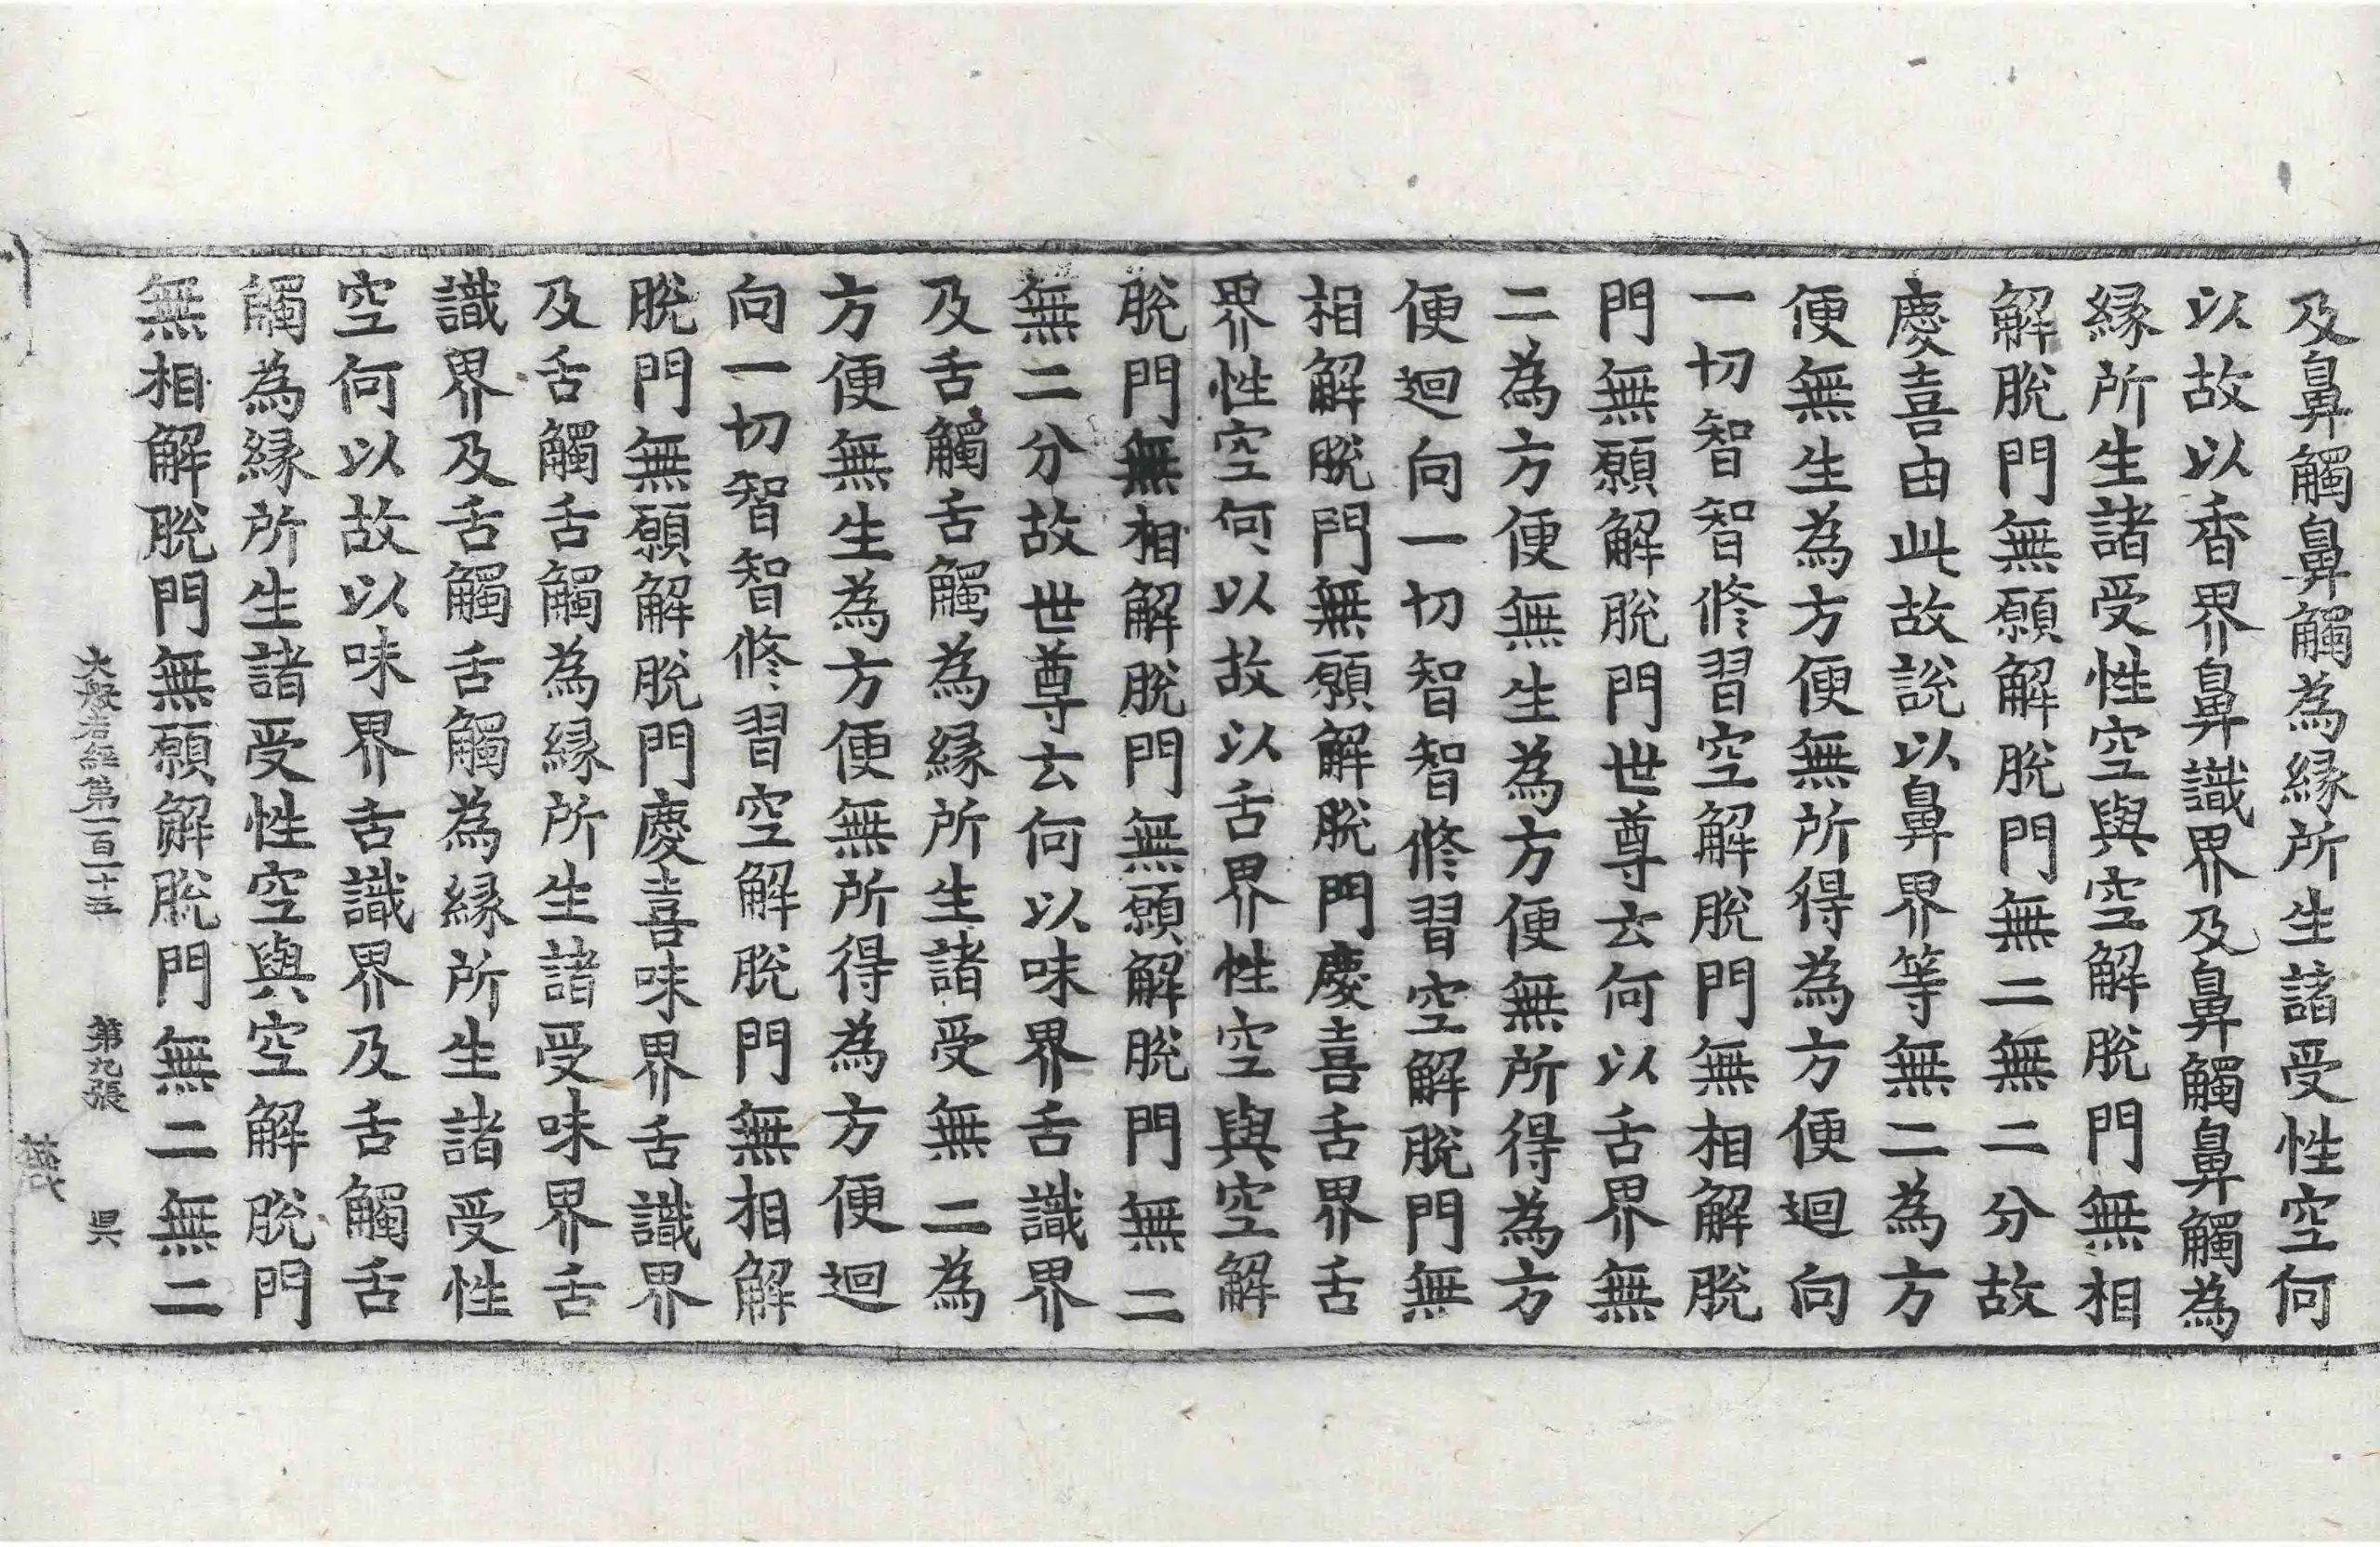 及鼻觸鼻觸為緣所生諸受性空何
以故以香界鼻識界及鼻觸鼻觸為
緣所生諸受性空與空解脫門無相
解脫門無願解脫門無二無二分故
慶喜由此故說以鼻界等無二為方
便無生為方便無所得為方便迴向
一切智智修習空解脫門無相解脫
門無願解脫門世尊云何以舌界無
二為方便無生為方便無所得為方
便迴向一切智智修習空解脫門無
相解脫門無願解脫門慶喜舌界舌
界性空何以故以舌界性空與空解
脫門無相解脫門無願解脫門無二
無二分故世尊云何以味界舌識界
及舌觸舌觸為緣所生諸受無二為
方便無生為方便無所得為方便迴
向一切智智修習空解脫門無相解
脫門無願解脫門慶喜味界舌識界
及舌觸舌觸為緣所生諸受味界舌
識界及舌觸舌觸為緣所生諸受性
空何以故以味界舌識界及舌觸舌
觸為緣所生諸受性空與空解脫門
無相解脫門無願解脫門無二無二
大般若經第一百二十五 第九張 昃